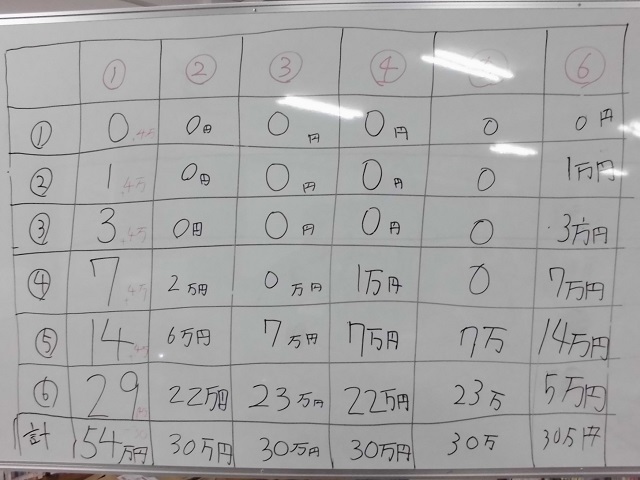 ① ② ③ ④ ⑤ ⑥
① 0 .4万 0円 0円 0円 0 0円
② 1 .4万 0円 0円 0円 0 1万円
③ 3 .4万 0円 0円 0円 0 3万円
④ 7 .4万 2万円 0万円 1万円 0 7万円
⑤ 14 .4万 6万円 7万円 7万円 7万 14万円
⑥ 29 22万円 23万円 22万円 23万 5万円
計 54万円 30万円 30万円 30万円 30万 30万円